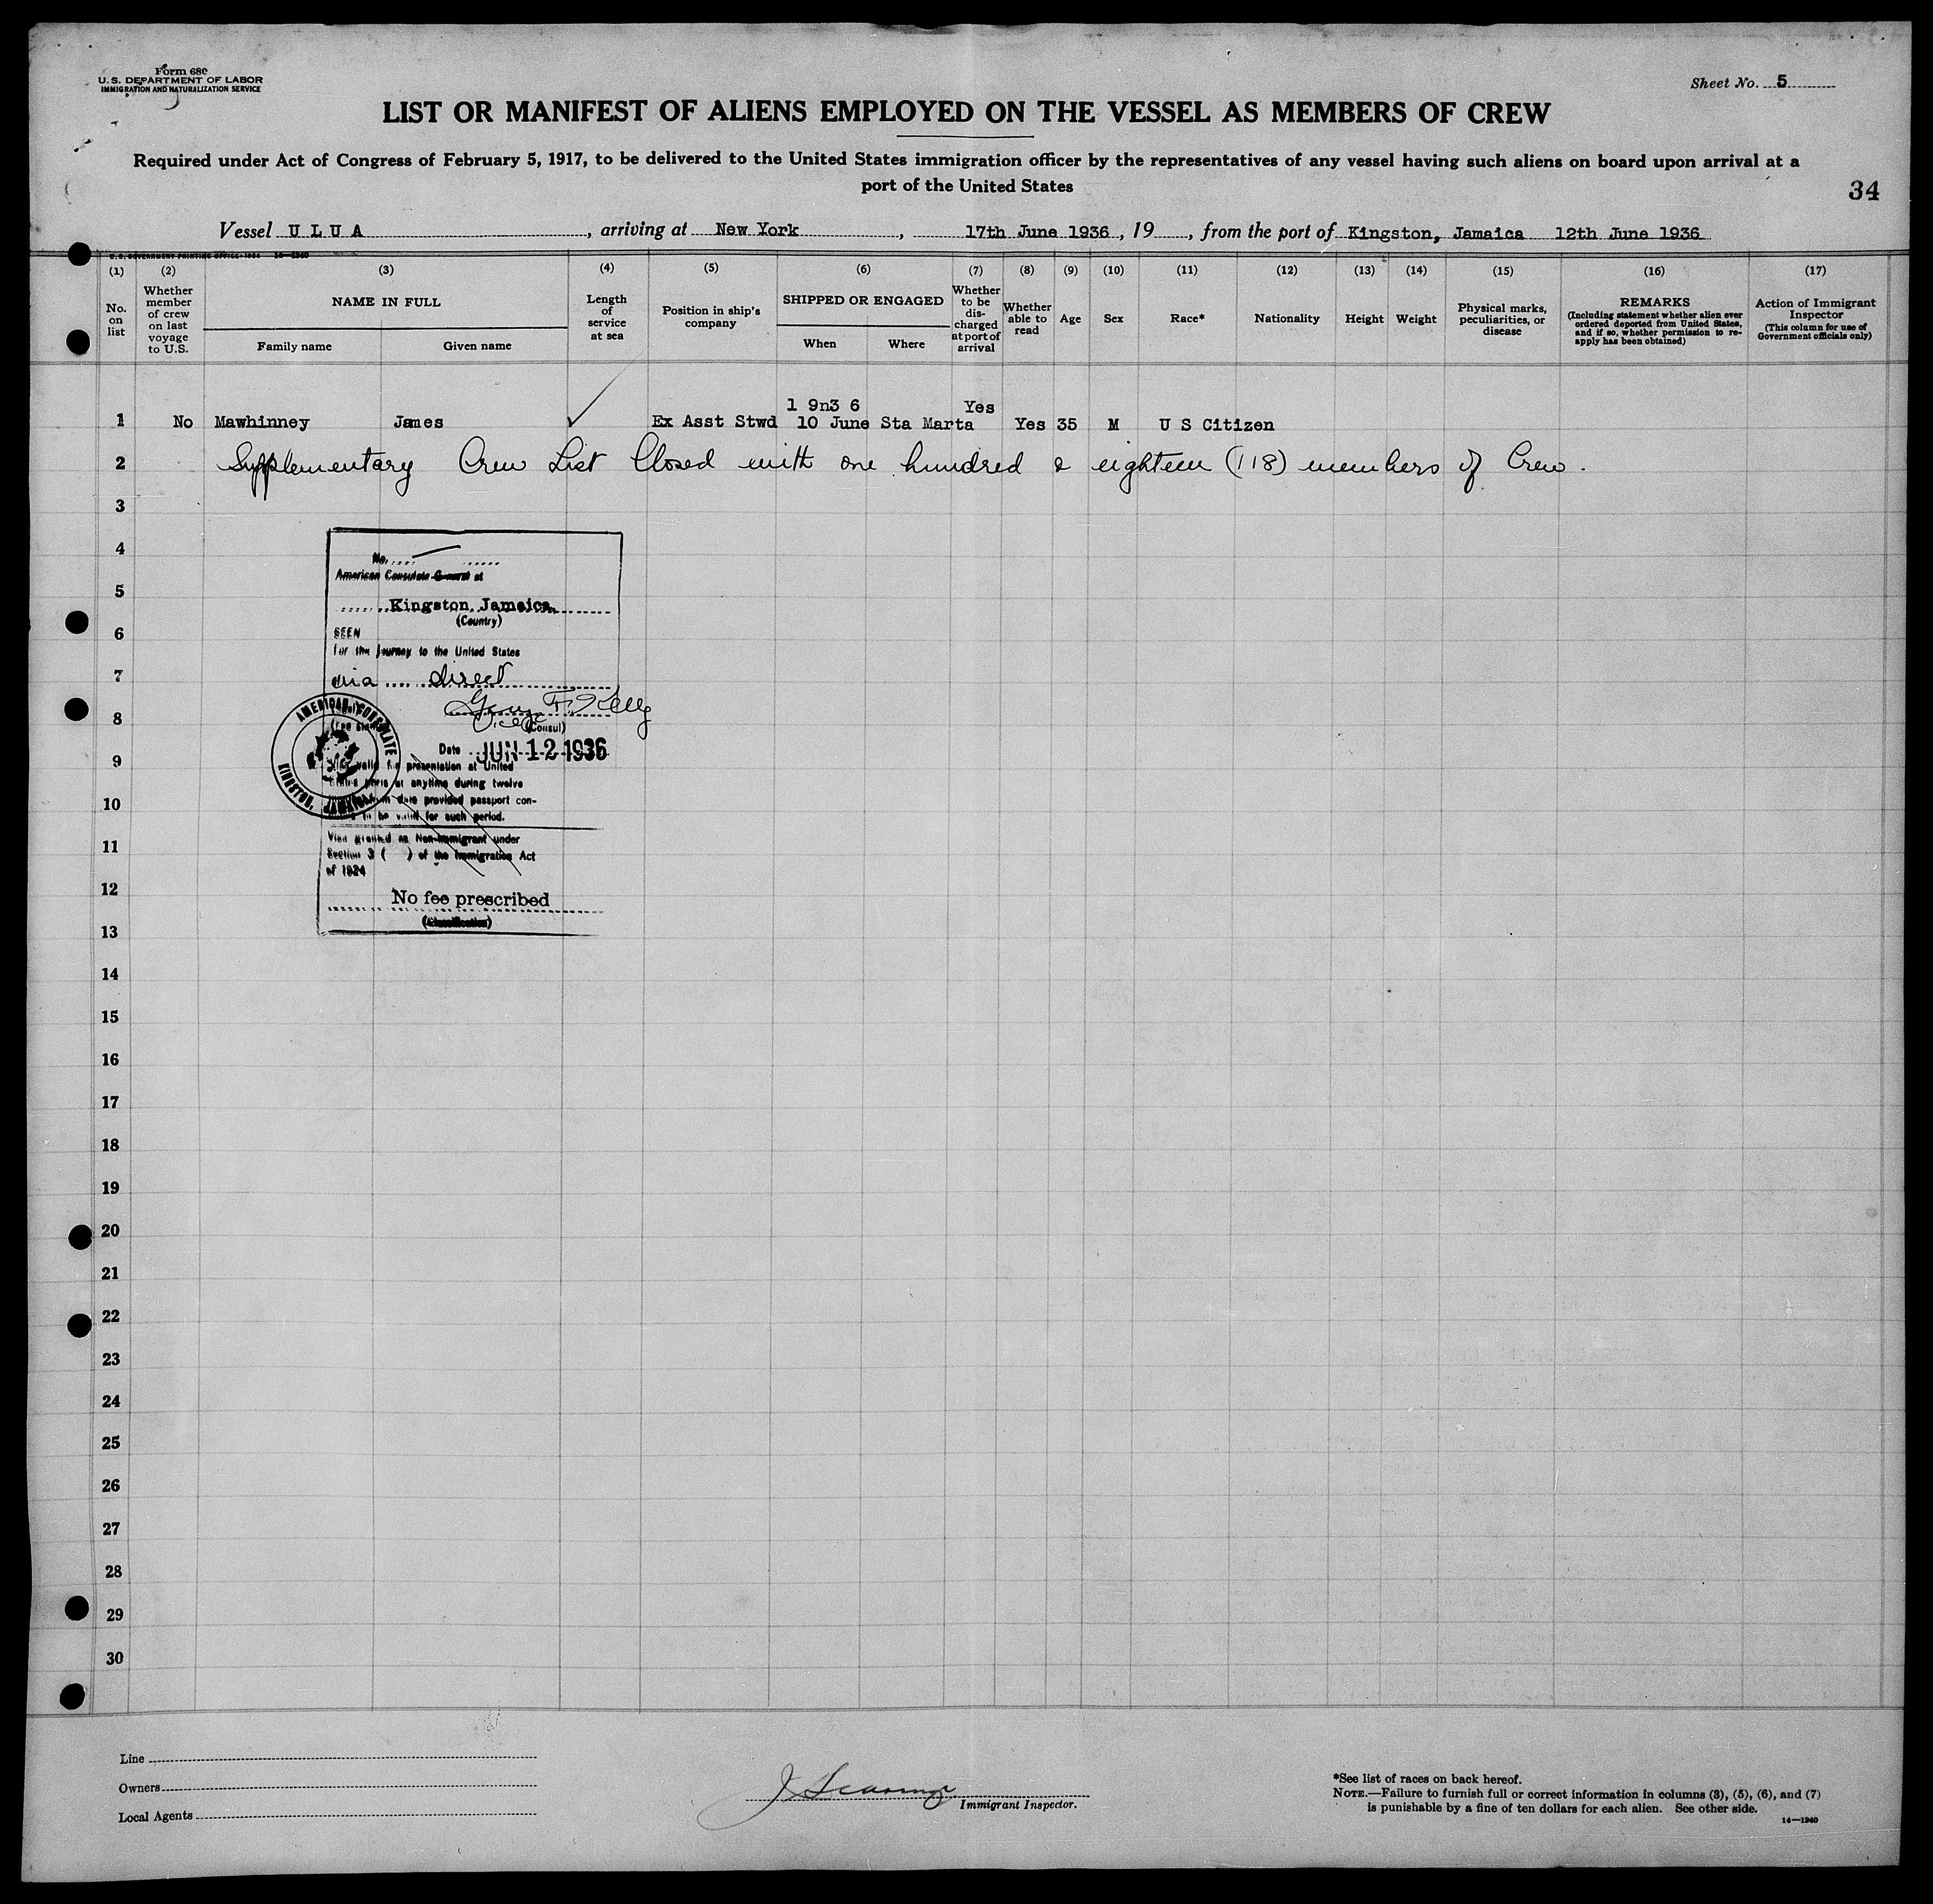 Form 680
U.S. DEPARTMENT OF LABOR
IMMIGRATION AND NATURALIZATION SERVICE
Sheet No. 5
LIST OR MANIFEST OF ALIENS EMPLOYED ON THE VESSEL AS MEMBERS OF CREW
Required under Act of Congress of February 5, 1917, to be delivered to the United States immigration officer by the representatives of any vessel having such aliens on board upon arrival at a
port of the United States
34
Vessel U L U A, arriving at New York, 17th June 1936, 19, from the port of Kingston, Jamaica 12th June 1936
U.S. GOVERNMENT PRINTING OFFICE: 1934 14—1240
(1) (2) (3) (4) (5) (6) (7) (8) (9) (10) (11) (12) (13) (14) (15) (16) (17)
No. on list
Whether member of crew on last voyage to U.S.
NAME IN FULL
Family name Given name
Length of service at sea
Position in ship's company
SHIPPED OR ENGAGED
When Where
Whether to be discharged at port of arrival
Whether able to read
Age
Sex
Race*
Nationality
Height
Weight
Physical marks, peculiarities, or disease
REMARKS
(Including statement whether alien ever ordered deported from United States, and if so, whether permission to re-apply has been obtained)
Action of Immigrant Inspector
(This column for use of Government officials only)
1 9n3 6 Yes
1 No Mawhinney James ✓ Ex Asst Stwd 10 June Sta Marta Yes 35 M U S Citizen
2 Supplementary Crew List Closed with one hundred & eighteen (118) members of Crew.
3
4
5
6
7
8
9
10
11
12
13
14
15
16
17
18
19
20
21
22
23
24
25
26
27
28
29
30
No.
American Consulate General at
Kingston, Jamaica
(Country)
SEEN
For the journey to the United States
via direct
George F. Kelly
Vice
(Consul)
(Fee Stamp)
AMERICAN CONSULATE
KINGSTON, JAMAICA
Date JUN 12 1936
valid for presentation at United
States ports at anytime during twelve
from date provided passport con-
tinues to be valid for such period.
Visa granted as Non-Immigrant under
Section 3 ( ) of the Immigration Act
of 1924
No fee prescribed
(Classification)
Line
Owners
Local Agents
Immigrant Inspector.
*See list of races on back hereof.
NOTE.—Failure to furnish full or correct information in columns (3), (5), (6), and (7)
is punishable by a fine of ten dollars for each alien. See other side.
14—1240